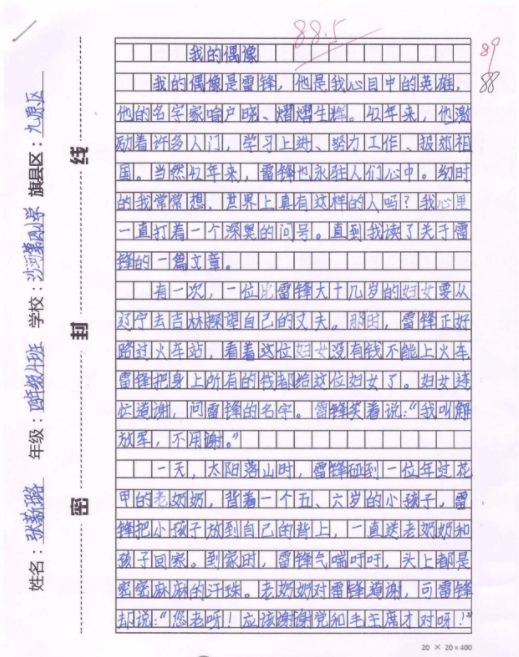 88.5
89
88
我的偶像
我的偶像是雷锋，他是我心目中的英雄，
他的名字家喻户晓、熠熠生辉。42年来，他激
励着许多人们，学习上进、努力工作、报效祖
国。当然42年来，雷锋也永驻人们心中。幼时
的我常常想，世界上真有这样的人吗？我心里
一直打着一个深奥的问号。直到我读了关于雷
锋的一篇文章。
有一次，一位比雷锋大十几岁的妇女要从
辽宁去吉林探望自己的丈夫。那时，雷锋正好
路过火车站，看着这位妇女没有钱不能上火车
雷锋把身上所有的钱都给这位妇女了。妇女连
忙道谢，问雷锋的名字。雷锋笑着说：“我叫解
放军，不用谢。”
一天，太阳落山时，雷锋碰到一位年过花
甲的老奶奶，背着一个五、六岁的小孩子，雷
锋把小孩子放到自己的背上，一直送老奶奶和
孩子回家。到家时，雷锋气喘吁吁，头上都是
密密麻麻的汗珠。老奶奶对雷锋道谢，可雷锋
却说：“您老呀！应该谢谢党和毛主席才对呀！”
20 × 20=400
姓名：张新璐 年级：四年级4班 学校：沙河第四小学 旗县区：九原区
密 封 线